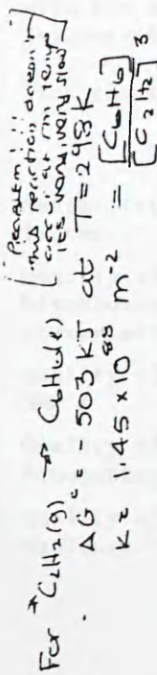 For *C2H2(g) → C6H6(l)
ΔG° = -503 kJ at T = 298 K
K = 1.45 × 10^88 M^-2 = [C6H6] / [C2H2]^3
this reaction doesn't
at rm temp
very, very slow